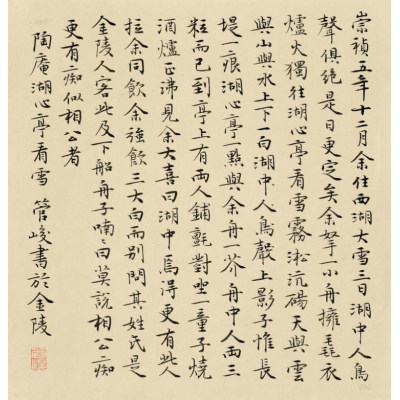 崇禎五年十二月余住西湖大雪三日湖中人鳥
聲俱絕是日更定矣余拏一小舟擁毳衣
爐火獨往湖心亭看雪霧淞沆碭天與雲
與山與水上下一白湖中人鳥聲上影子惟長
堤一痕湖心亭一點與余舟一芥舟中人兩三
粒而已到亭上有兩人鋪氈對坐一童子燒
酒爐正沸見余大喜曰湖中焉得更有此人
拉余同飲余強飲三大白而別問其姓氏是
金陵人客此及下船舟子喃々曰莫說相公痴
更有痴似相公者
陶庵湖心亭看雪 管峻書於金陵